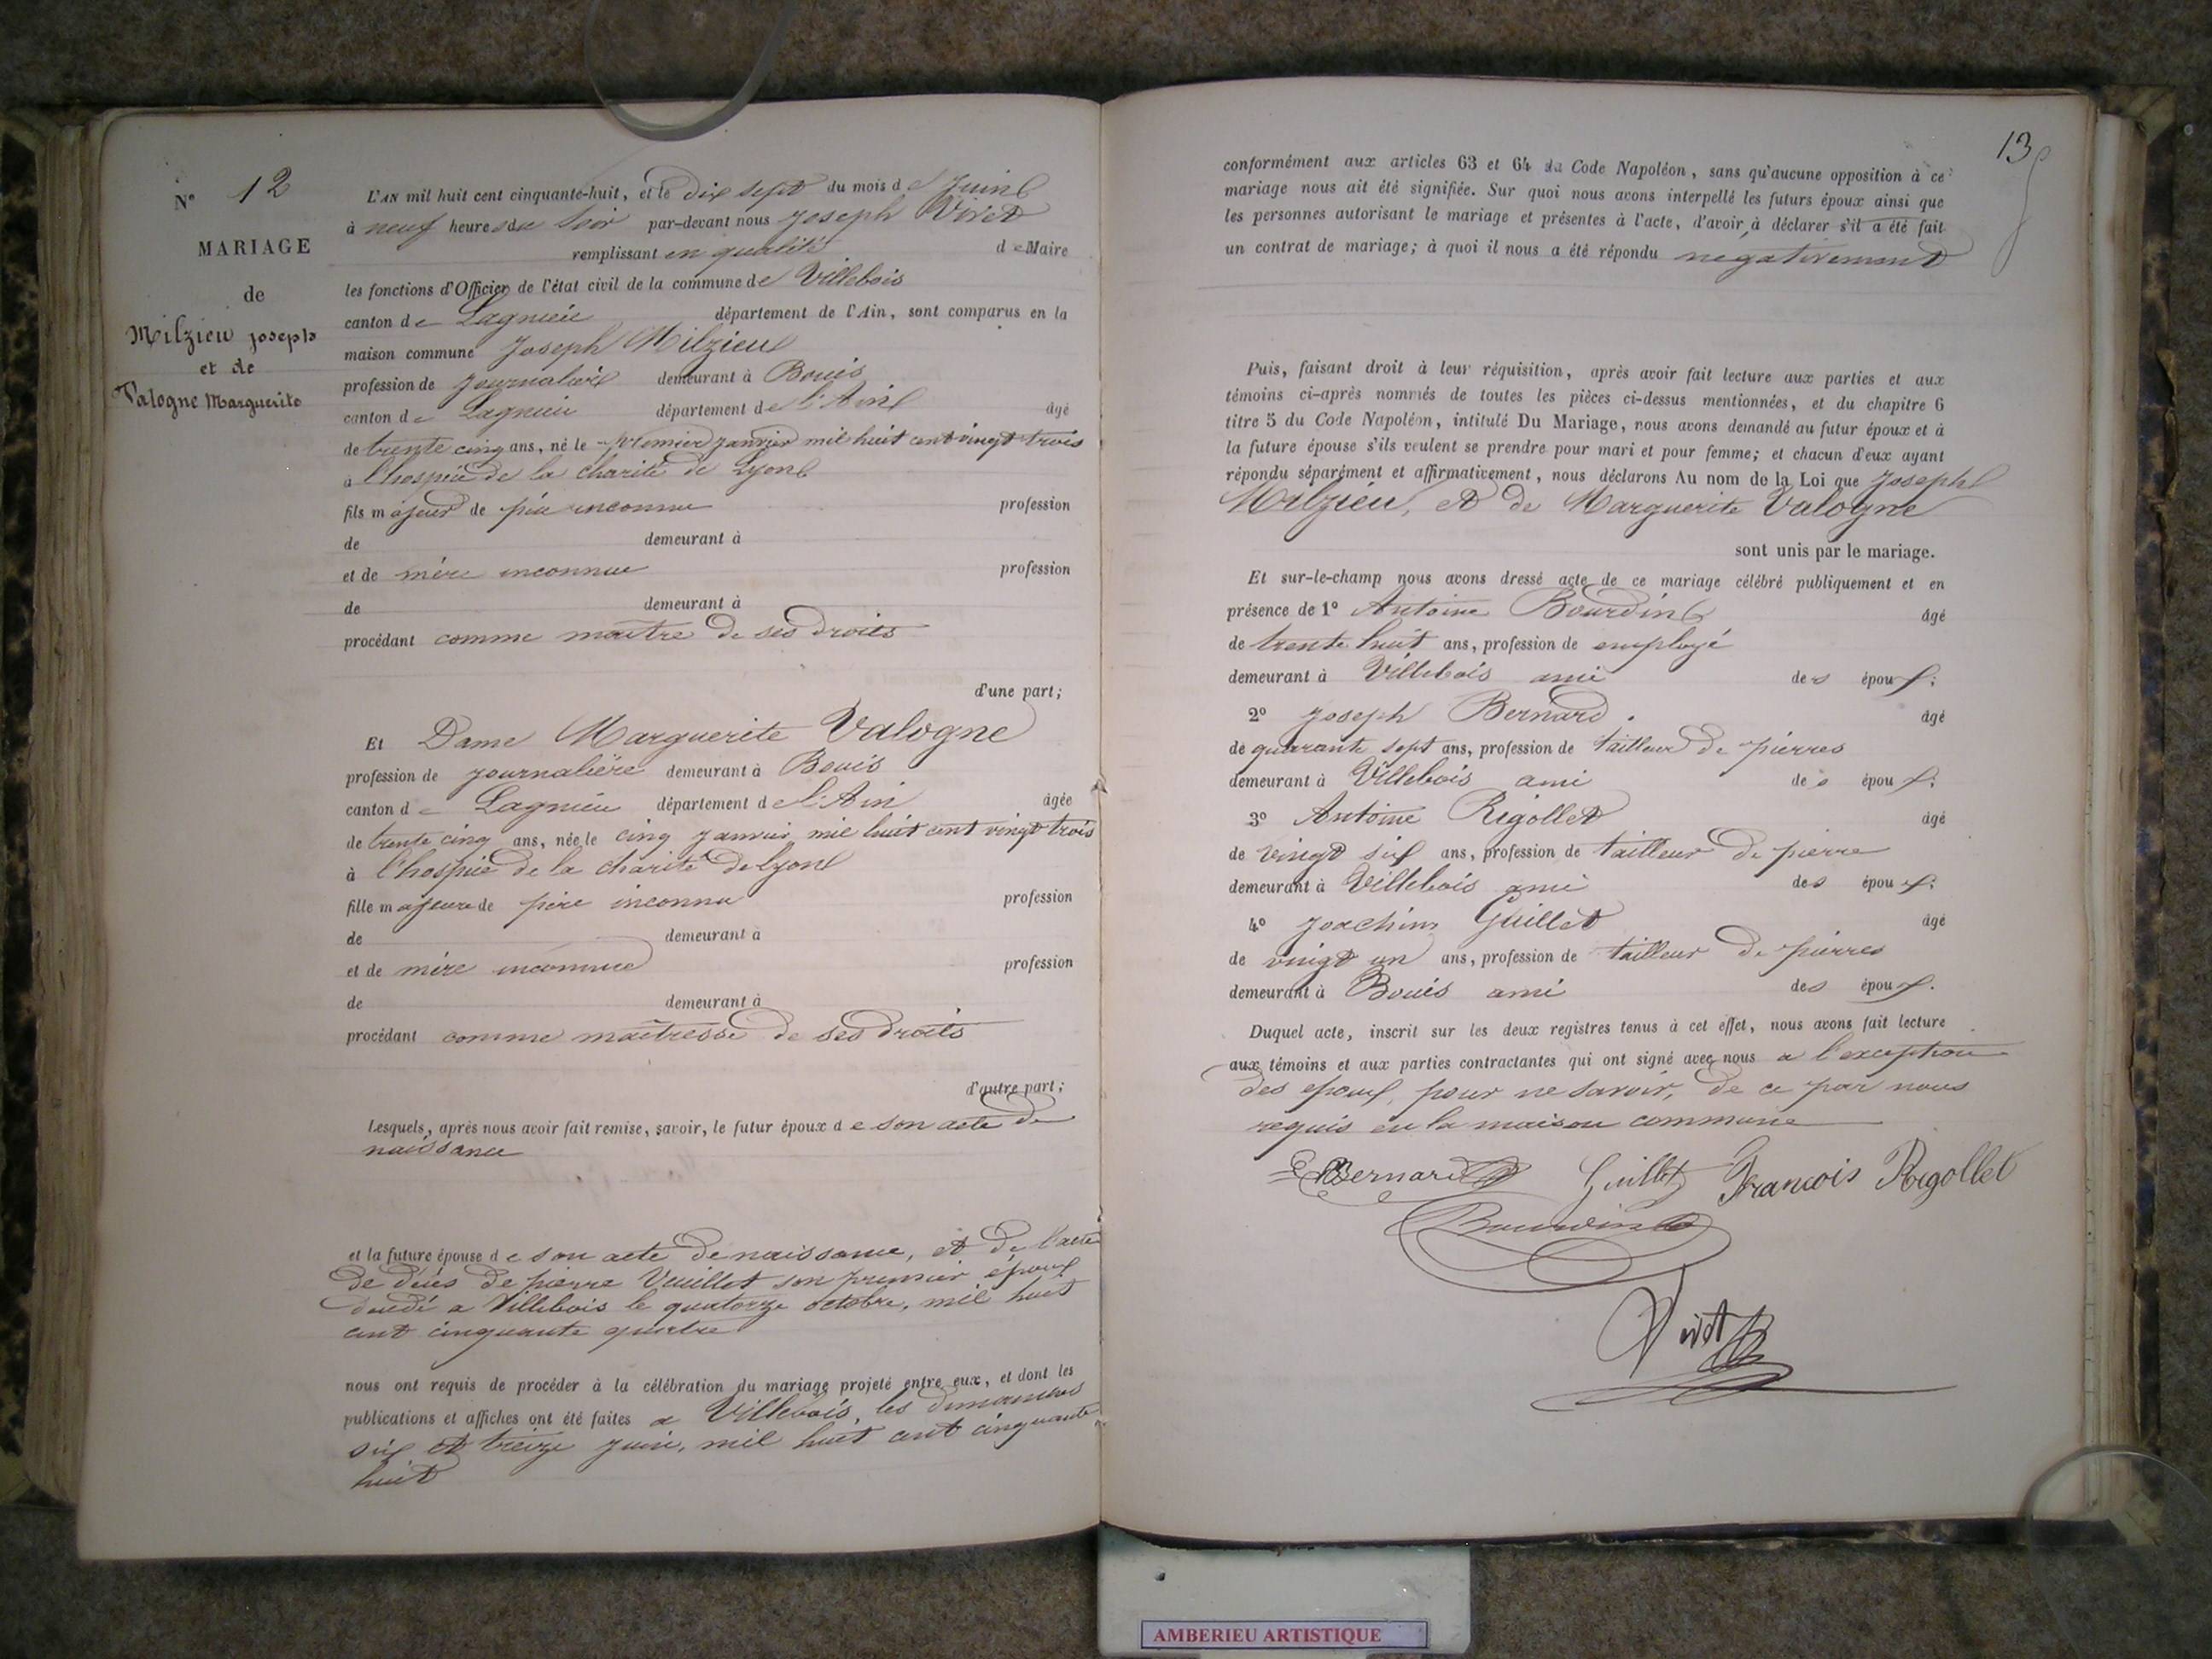 N° 12
MARIAGE
de
Milzieu joseph
et de
Valogne Marguerite
L'AN mil huit cent cinquante-huit, et le dix sept du mois de Juin
à neuf heures du Soir par-devant nous joseph Vivet
remplissant en qualité de Maire
les fonctions d'Officier de l'état civil de la commune de Villebois
canton de Lagnieu département de l'Ain, sont comparus en la
maison commune Joseph Milzieu
profession de journalier demeurant à Bouis
canton de Lagnieu département de l'Ain âgé
de trente cinq ans, né le premier janvier mil huit cent vingt trois
à l'hospice de la charité de Lyon
fils majeur de père inconnu profession
de demeurant à
et de mère inconnue profession
de demeurant à
procédant comme maître de ses droits
d'une part;
Et Dame Marguerite Valogne
profession de journalière demeurant à Bouis
canton de Lagnieu département de l'Ain âgée
de trente cinq ans, née le cinq janvier mil huit cent vingt trois
à l'hospice de la charité de Lyon
fille majeure de père inconnu profession
de demeurant à
et de mère inconnue profession
de demeurant à
procédant comme maîtresse de ses droits
d'autre part;
Lesquels, après nous avoir fait remise, savoir, le futur époux de son acte de
naissance
et la future épouse de son acte de naissance, et de l'acte
de décès de pierre Vuillet son premier époux
décédé a Villebois le quatorze octobre, mil huit
cent cinquante quatre
nous ont requis de procéder à la célébration du mariage projeté entre eux, et dont les
publications et affiches ont été faites a Villebois, les dimanches
six et treize juin, mil huit cent cinquante
huit
13
conformément aux articles 63 et 64 du Code Napoléon, sans qu'aucune opposition à ce
mariage nous ait été signifiée. Sur quoi nous avons interpellé les futurs époux ainsi que
les personnes autorisant le mariage et présentes à l'acte, d'avoir à déclarer s'il a été fait
un contrat de mariage; à quoi il nous a été répondu negativement
Puis, faisant droit à leur réquisition, après avoir fait lecture aux parties et aux
témoins ci-après nommés de toutes les pièces ci-dessus mentionnées, et du chapitre 6
titre 5 du Code Napoléon, intitulé Du Mariage, nous avons demandé au futur époux et à
la future épouse s'ils veulent se prendre pour mari et pour femme; et chacun d'eux ayant
répondu séparément et affirmativement, nous déclarons Au nom de la Loi que Joseph
Milzieu, et de Marguerite Valogne
sont unis par le mariage.
Et sur-le-champ nous avons dressé acte de ce mariage célébré publiquement et en
présence de 1° Antoine Bourdin âgé
de trente huit ans, profession de employé
demeurant à Villebois ami des époux;
2° joseph Bernard. âgé
de quarante sept ans, profession de tailleur de pierres
demeurant à Villebois ami des époux;
3° Antoine Rigollet âgé
de vingt six ans, profession de tailleur de pierre
demeurant à Villebois ami des époux;
4° joachim Guillet âgé
de vingt un ans, profession de tailleur de pierres
demeurant à Bouis ami des époux.
Duquel acte, inscrit sur les deux registres tenus à cet effet, nous avons fait lecture
aux témoins et aux parties contractantes qui ont signé avec nous a l'exception
des epoux, pour ne savoir, de ce par nous
requis en la maison commune
Bernard Guillet francois Rigollet
Bourdin
Vivet
AMBERIEU ARTISTIQUE